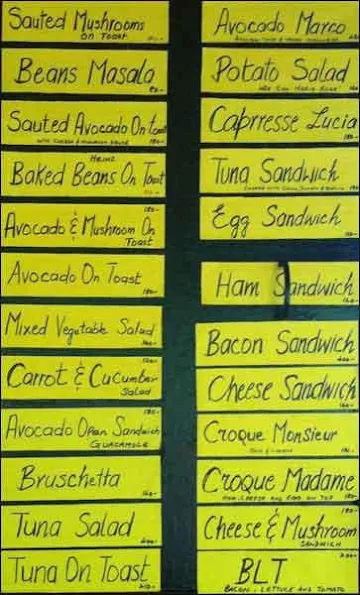 Sauted Mushrooms
on Toast
Beans Masala
80-
Sauted Avocado On toast
Heinz
Baked Beans On Toast
Avocado & Mushroom On
Toast
180-
Avocado On Toast
180-
Mixed Vegetable Salad
Carrot & Cucumber
Salad
Avocado Open Sandwich
Guacamole
180-
Bruschetta
Tuna Salad
Tuna On Toast
Avocado Marco
Potato Salad
Caprresse Lucia
Tuna Sandwich
Egg Sandwich
Ham Sandwich
Bacon Sandwich
Cheese Sandwich
Croque Monsieur
Croque Madame
Ham, Cheese and Egg on Top
Cheese & Mushroom
Sandwich
180-
BLT
Bacon, Lettuce and Tomato
200-